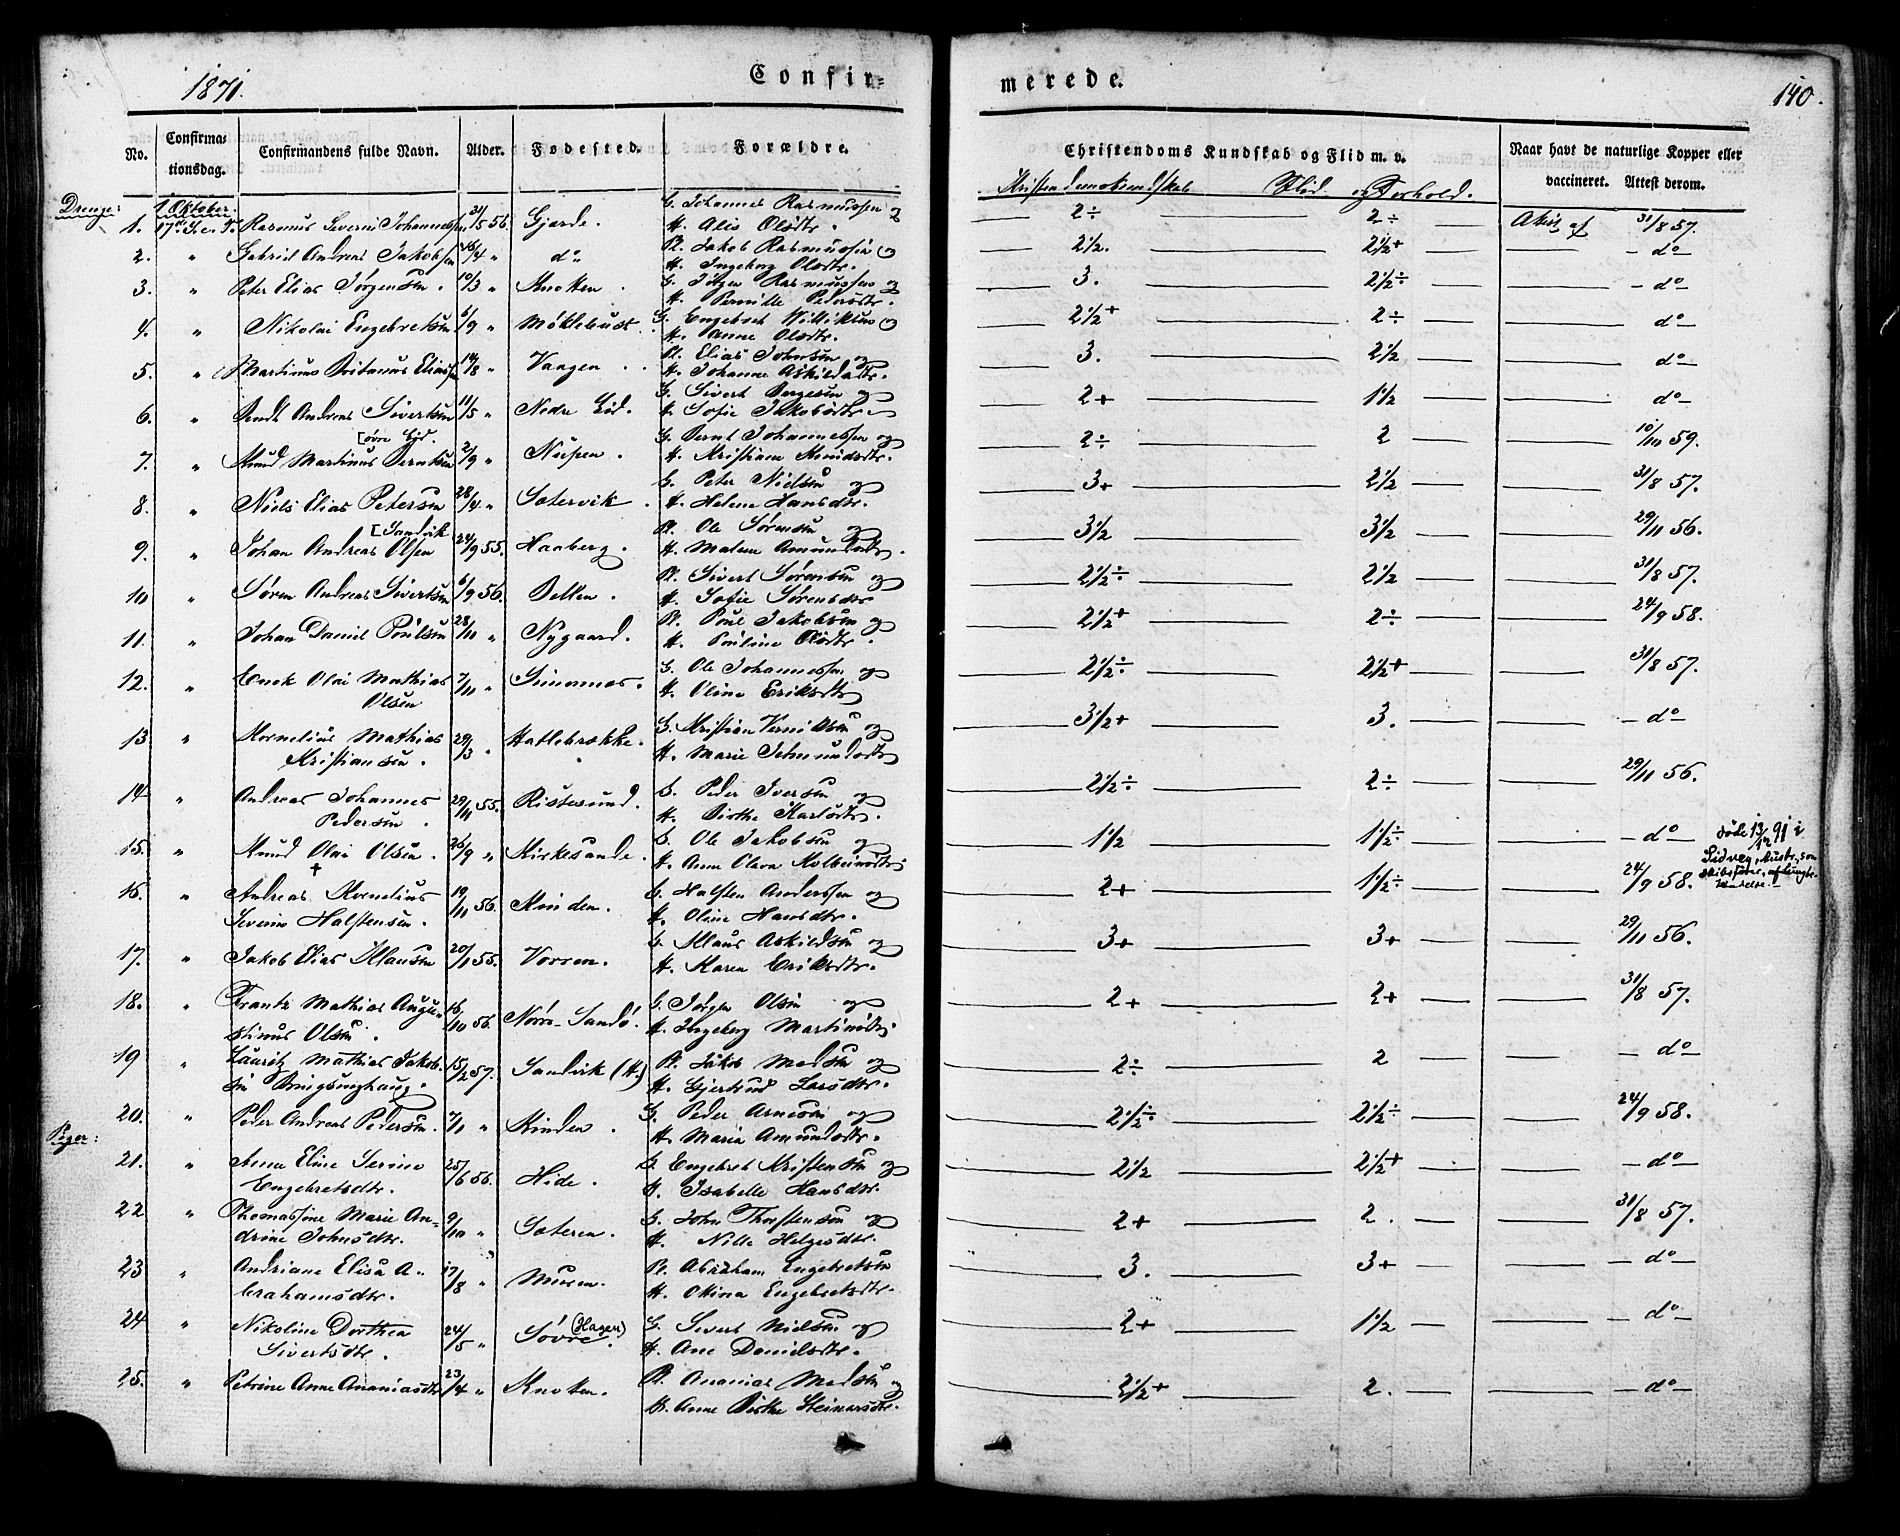 1871.
Confir-
merede.
140.
No.
Confirma-
tionsdag.
Confirmandens fulde Navn.
Alder.
Fødested.
Forældre.
Christendoms Kundskab og Flid m. v.
Naar havt de naturlige Kopper eller
vaccineret. Attest derom.
Kristendomskundskab Flid og Forhold.
Drenge:
1 Oktober
1. 17de S. e. T. Rasmus Severin Johannessen 31/5 56. Gjerde. G. Johannes Rasmussen &
H. Alis Olsdtr. 2÷ 2÷ Attest af 31/8 57.
2. " Gabriel Andreas Jakobsen 26/4 " do P. Jakob Rasmussen og
H. Ingeborg Olsdtr. 2½. 2½+ do
3. " Peter Elias Jørgensen. 10/3 " Knotten. G. Jörgen Rasmussen og
H. Pernille Pedersdtr. 3. 2½÷ do
4. " Nikolai Engebretsen 6/9 " Möklebust. G. Engebret Williksen og
H. Anne Olsdtr. 2½+ 2÷ do
5. " Martinus Eliassen 14/8 " Vaagen. P. Elias Johnsen og
H. Johanne Askildsdtr. 3. 2½ do
6. " Andreas Sivertsen 11/5 " Nedre Eid. G. Sivert og
H. Sofie Jakobsdtr. 2+ 1½ do
[øvre Eid.
7. " Knud Martinus Berntsen 2/9 " G. Bernt Johannessen og
H. Kristiane Knudsdtr. 2÷ 2 10/10 59.
8. " Niels Elias Petersen 28/4 " Sætervik. G. Peter Nielsen og
H. Helene Hansdtr. 3+ 2½ 31/8 57.
[Sandvik
9. " Johan Andreas Olsen 24/9 55. Haaberg. P. Ole Sørensen og
H. Malene Amundsdtr. 3½ 3½ 29/11 56.
10 " Søren Andreas Sivertsen 6/9 56. P. Sivert Sørensen og
H. Sofie Sørensdtr 2½÷ 2½ 31/8 57.
11. " Johan Daniel Poulsen 28/10 " Nygaard. P. Poul Jakobsen og
H. Pouline Olsdtr. 2½+ 2÷ 24/9 58.
12. " Olai Mathias
Olsen 7/11 " G. Ole Johannessen og
H. Oline Eriksdtr. 2½÷ 2½+ 31/8 57.
13 " Kornelius Mathias
Kristiansen. 29/3 " Hatlebrække. G. Kristian og
H. Marie 3½+ 3. do
14 " Andreas Johannes
Pedersen. 29/11 55. Ristesund. G. Peder Iversen og
H. Birthe Karlsdtr. 2½÷ 2÷ 29/11 56.
15. " Knud Olai Olsen. 26/9 " Kirkesande. G. Ole Jakobsen og
H. Anne Olava Kolbeinsdtr. 1½ 1½÷ do
døde 13/12 91 i
Sidney, Austr., som
Skibsfører, af Lungebetændelse
16. " Andreas Kornelius
Severin Halstensen. 19/11 56. Kvinden. G. Halsten Anderssen og
H. Oline Hansdtr. 2+ 1½÷ 24/9 58.
17. " Jakob Elias Klausen 20/1 55. Vorren. G. Klaus Askildsen og
H. Karen Eriksdtr. 3+ 3+ 29/11 56.
18. " Frantz Mathias Augu-
stinus Olsen. 16/10 56. Nörre-Sandö. G. Jörgen Olsen og
H. Ingeborg Martinsdtr. 2+ 2+ 31/8 57.
19 " Lauritz Mathias Jakob-
sen Bringsinghaug. 15/2 57. Sandvik (H.) P. Jakob Madsen og
H. Gjertrud Larsdtr. 2÷ 2 do
20. " Peder Andreas Pedersen. 7/1 " Kinden. G. Peder Arnesen og
H. Maria Amundsdtr. 2½÷ 2½÷ 24/9 58.
Piger:
21. " Anne Eline Serine
Engebretsdtr. 25/6 56. Hide. G. Engebret Kristensen og
H. Isabelle Hansdtr. 2½ 2½+ do
22 " Thomassine Marie An-
drine Johnsdtr. 9/10 " Sæteren. G. John Thorstensen og
H. Nille Helgesdtr. 2+ 2. 31/8 57.
23 " Andriane Elisa A-
brahamsdtr. 17/8 " Muren. P. Abraham Engebretsen
H. Olina Engebretsdtr. 3. 3+ do
24 " Nikoline Dorthea
Sivertsdtr. 24/5 " Søvre (Hagen). G. Sivert Nielsen og
H. Ane Danielsdtr. 2+ 1½ do
25. " Petrine Anne Ananiasdtr 23/4 " Knotten. P. Ananias Madsen og
H. Anne Birthe Steinarsdtr. 2½+ 2. do